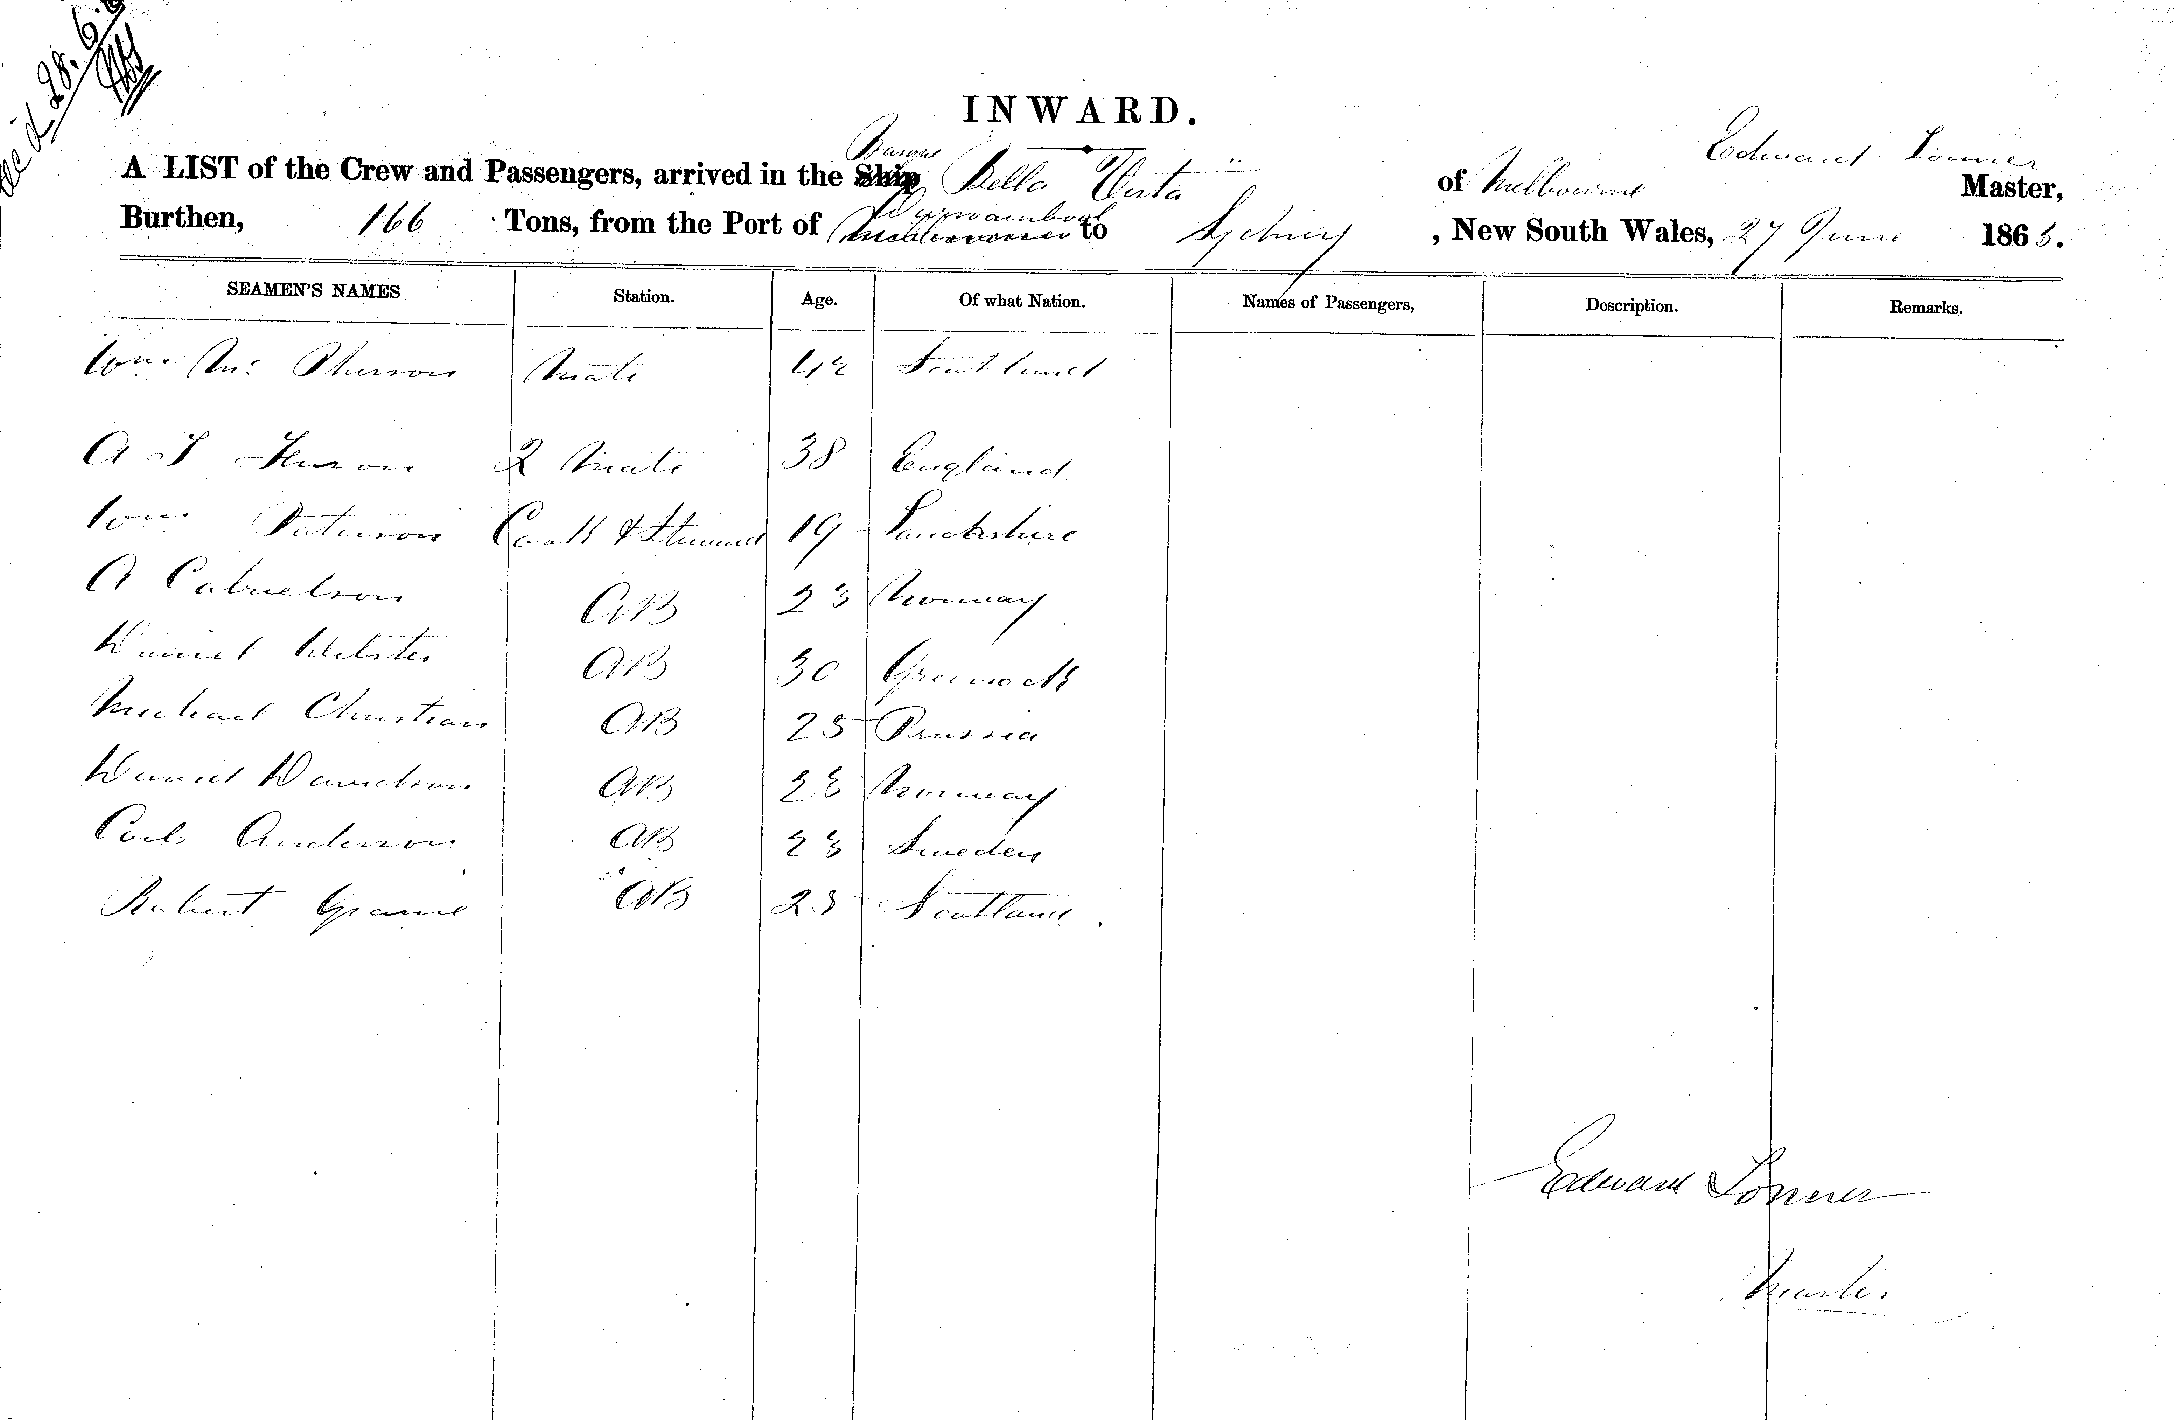 Rec'd 28.6.6
INWARD.
A LIST of the Crew and Passengers, arrived in the Ship Barque Bella Vista of Melbourne Edward Tonner Master,
Burthen, 166 Tons, from the Port of Warrnambool to Sydney, New South Wales, 27 June 1863.
SEAMEN'S NAMES Station. Age. Of what Nation. Names of Passengers, Description. Remarks.
Wm Mc Pherson Mate 42 Scotland
A 2 Mate 38 England
Wm Paterson Cook & Steward 19
A AB 23 Norway
Daniel Webster AB 30 Greenock
Michael Christian AB 25 Prussia
Daniel Danielson AB 23 Norway
Carl Anderson AB 23 Sweden
Robert AB 23 Scotland
Edward Tonner
Master